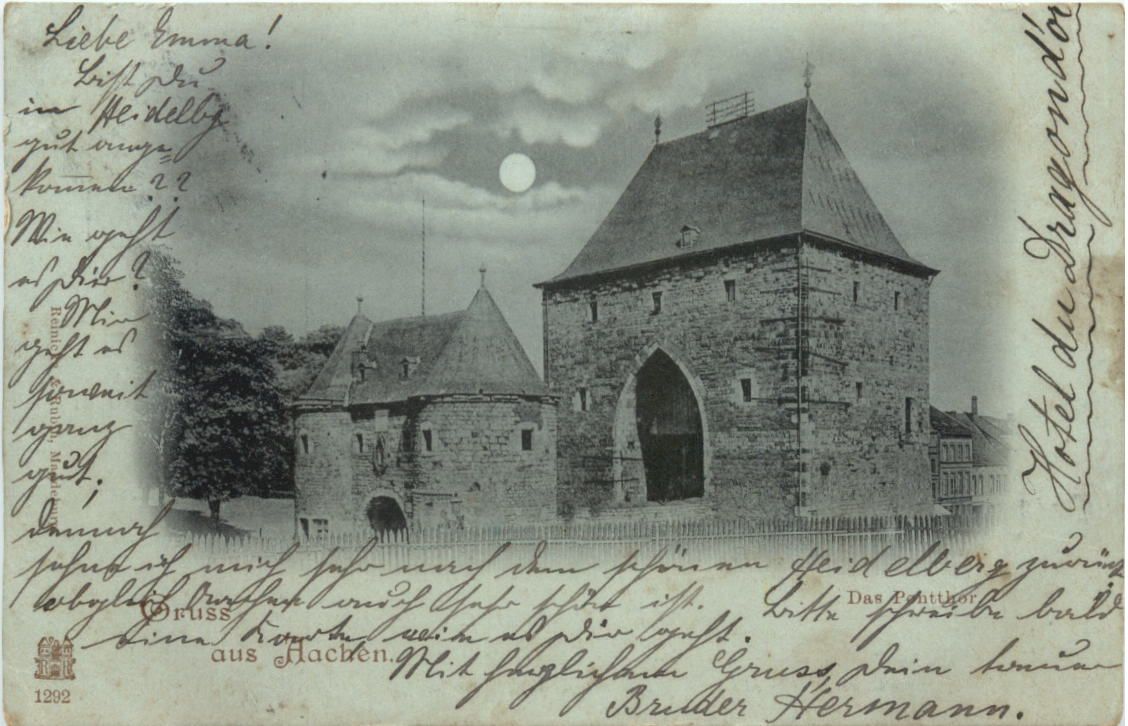 Liebe Emma!
Bist Du
in Heidelbg
gut ange=
kommen??
Wie geht
es Dir?
Mir
geht es
soweit
ganz
gut,
dennoch
sehne ich mich sehr nach dem schönen Heidelberg zurück
obgleich Aachen auch sehr schön ist. Bitte schreibe bald
eine Karte wie es Dir geht.
Mit herzlichem Gruss, Dein treuer
Bruder Hermann.
Hotel du Dragon d'or
Gruss
aus Aachen.
Das Pontthor.
Magdeburg
1292